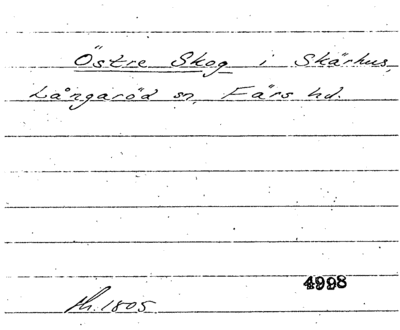 Östre Skog i Skärhus,
Långaröd sn, Färs hd.
4998
h. 1805